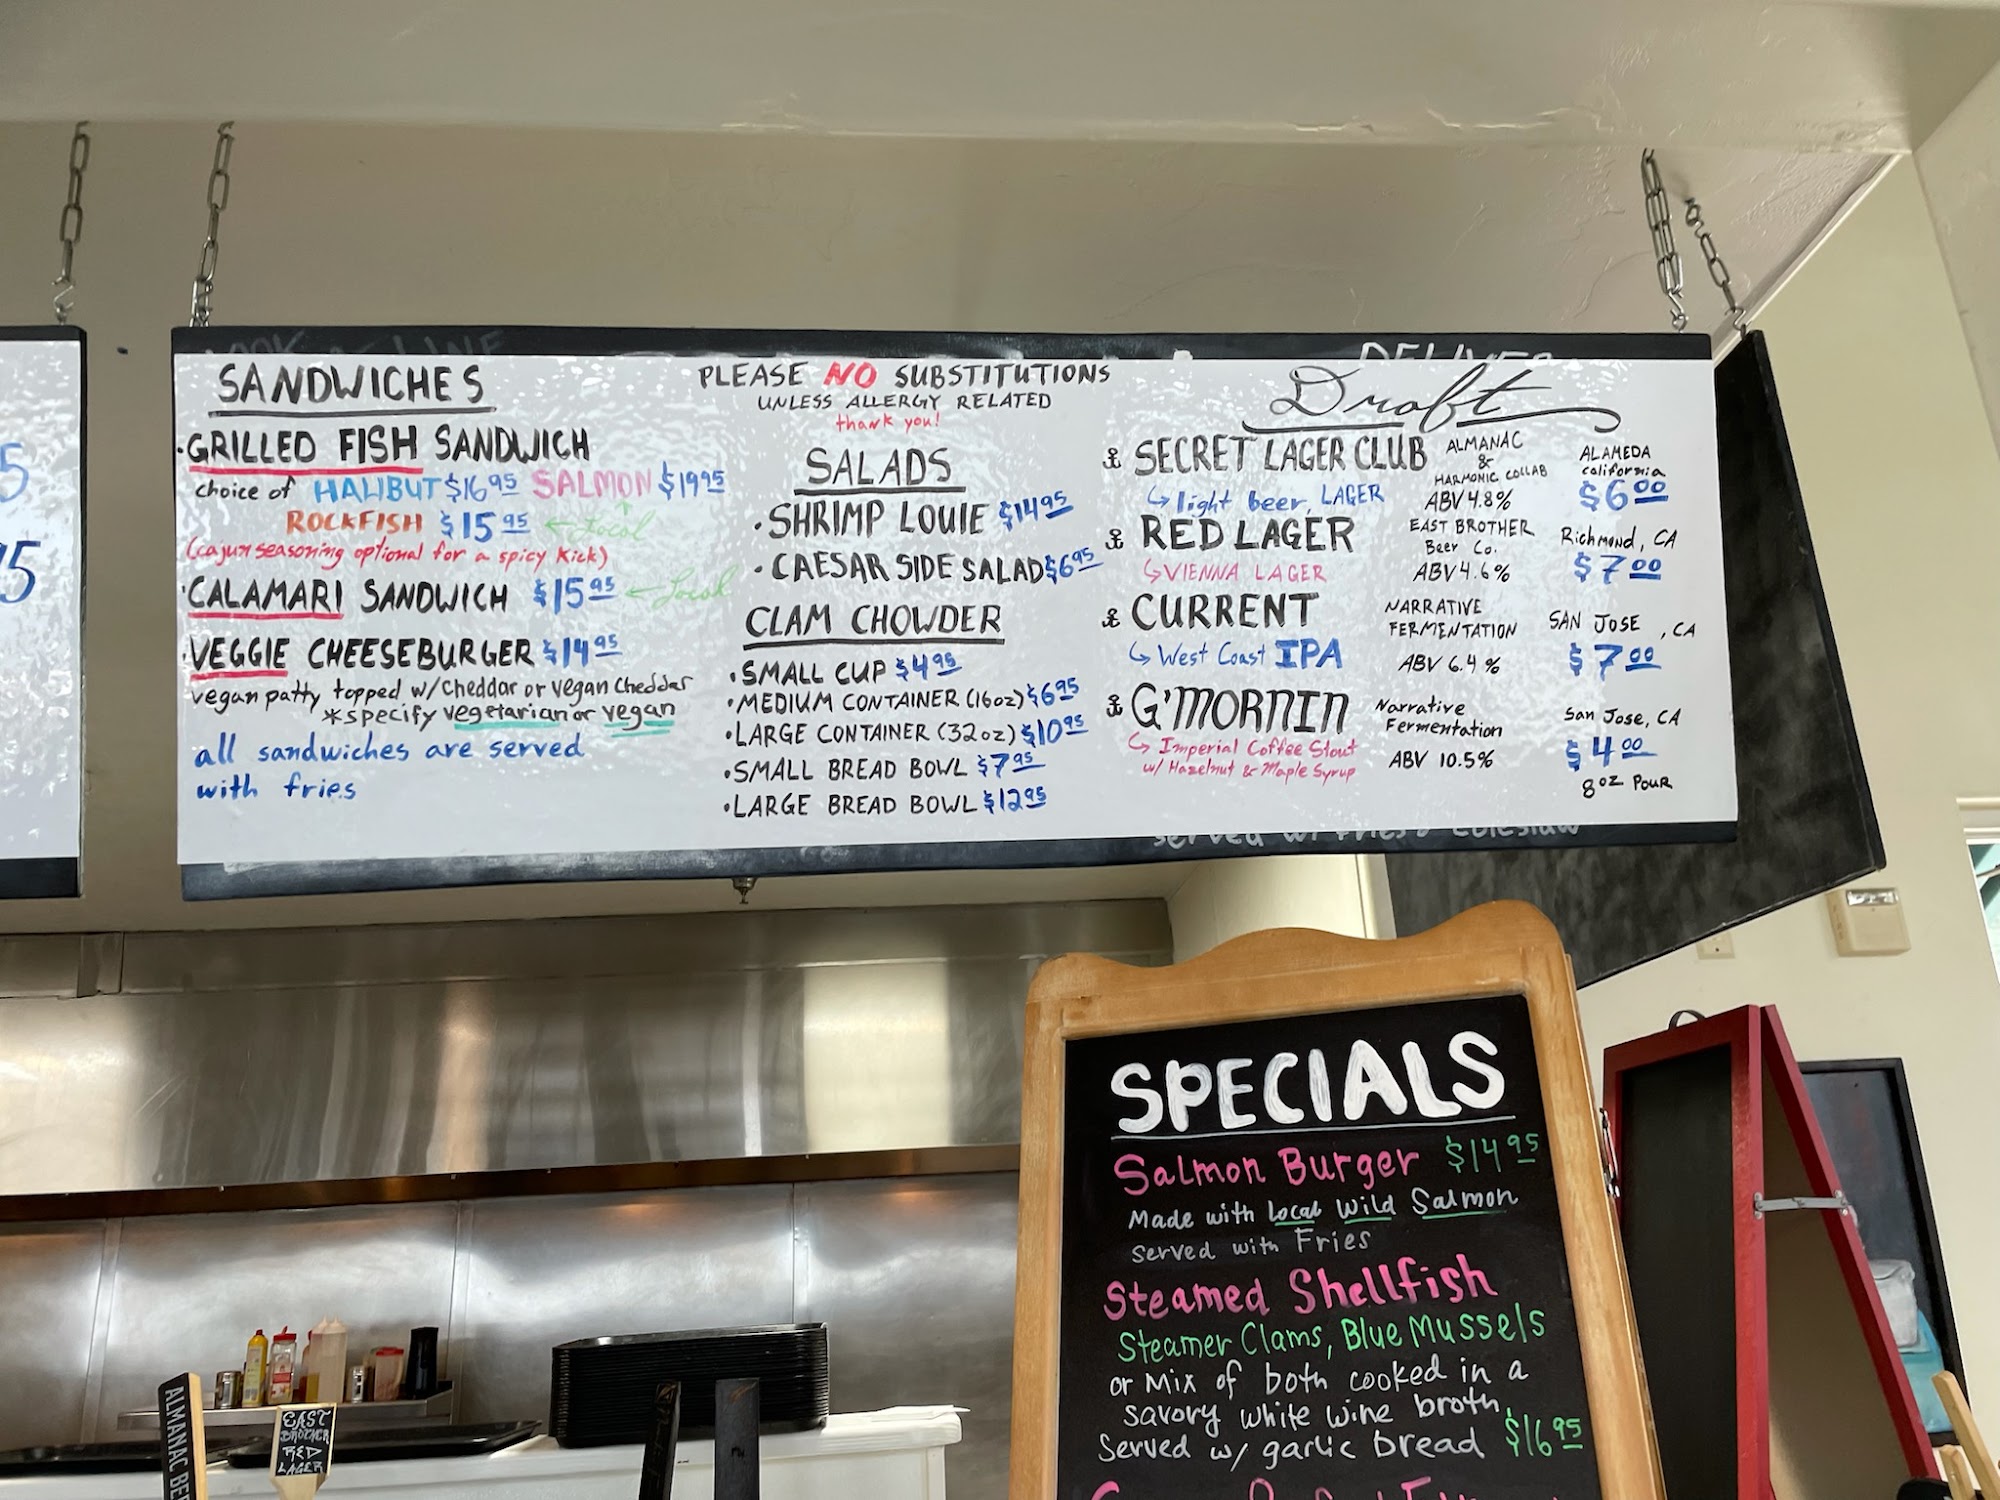 5
15
SANDWICHES
·GRILLED FISH SANDWICH
choice of HALIBUT $16.95 SALMON $19.95
ROCKFISH $15.95 ← Local
(cajun seasoning optional for a spicy kick)
·CALAMARI SANDWICH $15.95 ← Local
·VEGGIE CHEESEBURGER $14.95
vegan patty topped w/cheddar or vegan cheddar
*specify vegetarian or vegan
all sandwiches are served
with fries
PLEASE NO SUBSTITUTIONS
UNLESS ALLERGY RELATED
thank you!
SALADS
·SHRIMP LOUIE $14.95
·CAESAR SIDE SALAD $6.95
CLAM CHOWDER
·SMALL CUP $4.95
·MEDIUM CONTAINER (16oz) $6.95
·LARGE CONTAINER (32oz) $10.95
·SMALL BREAD BOWL $7.95
·LARGE BREAD BOWL $12.95
DELIVER
Draft
SECRET LAGER CLUB
light beer, LAGER
ALMANAC
&
HARMONIC COLLAB
ABV 4.8%
ALAMEDA
california
$6.00
RED LAGER
VIENNA LAGER
EAST BROTHER
Beer Co.
ABV 4.6%
Richmond, CA
$7.00
CURRENT
West Coast IPA
NARRATIVE
FERMENTATION
ABV 6.4%
SAN JOSE, CA
$7.00
G'MORNIN
Imperial Coffee Stout
w/ Hazelnut & Maple Syrup
Narrative
Fermentation
ABV 10.5%
San Jose, CA
$4.00
8oz POUR
served w/ Fries & Coleslaw
SPECIALS
Salmon Burger $14.95
Made with Local Wild Salmon
served with Fries
Steamed Shellfish
Steamer Clams, Blue Mussels
or Mix of both cooked in a
savory white wine broth,
Served w/ garlic bread $16.95
ALMANAC BEE
EAST
BROTHER
RED
LAGER